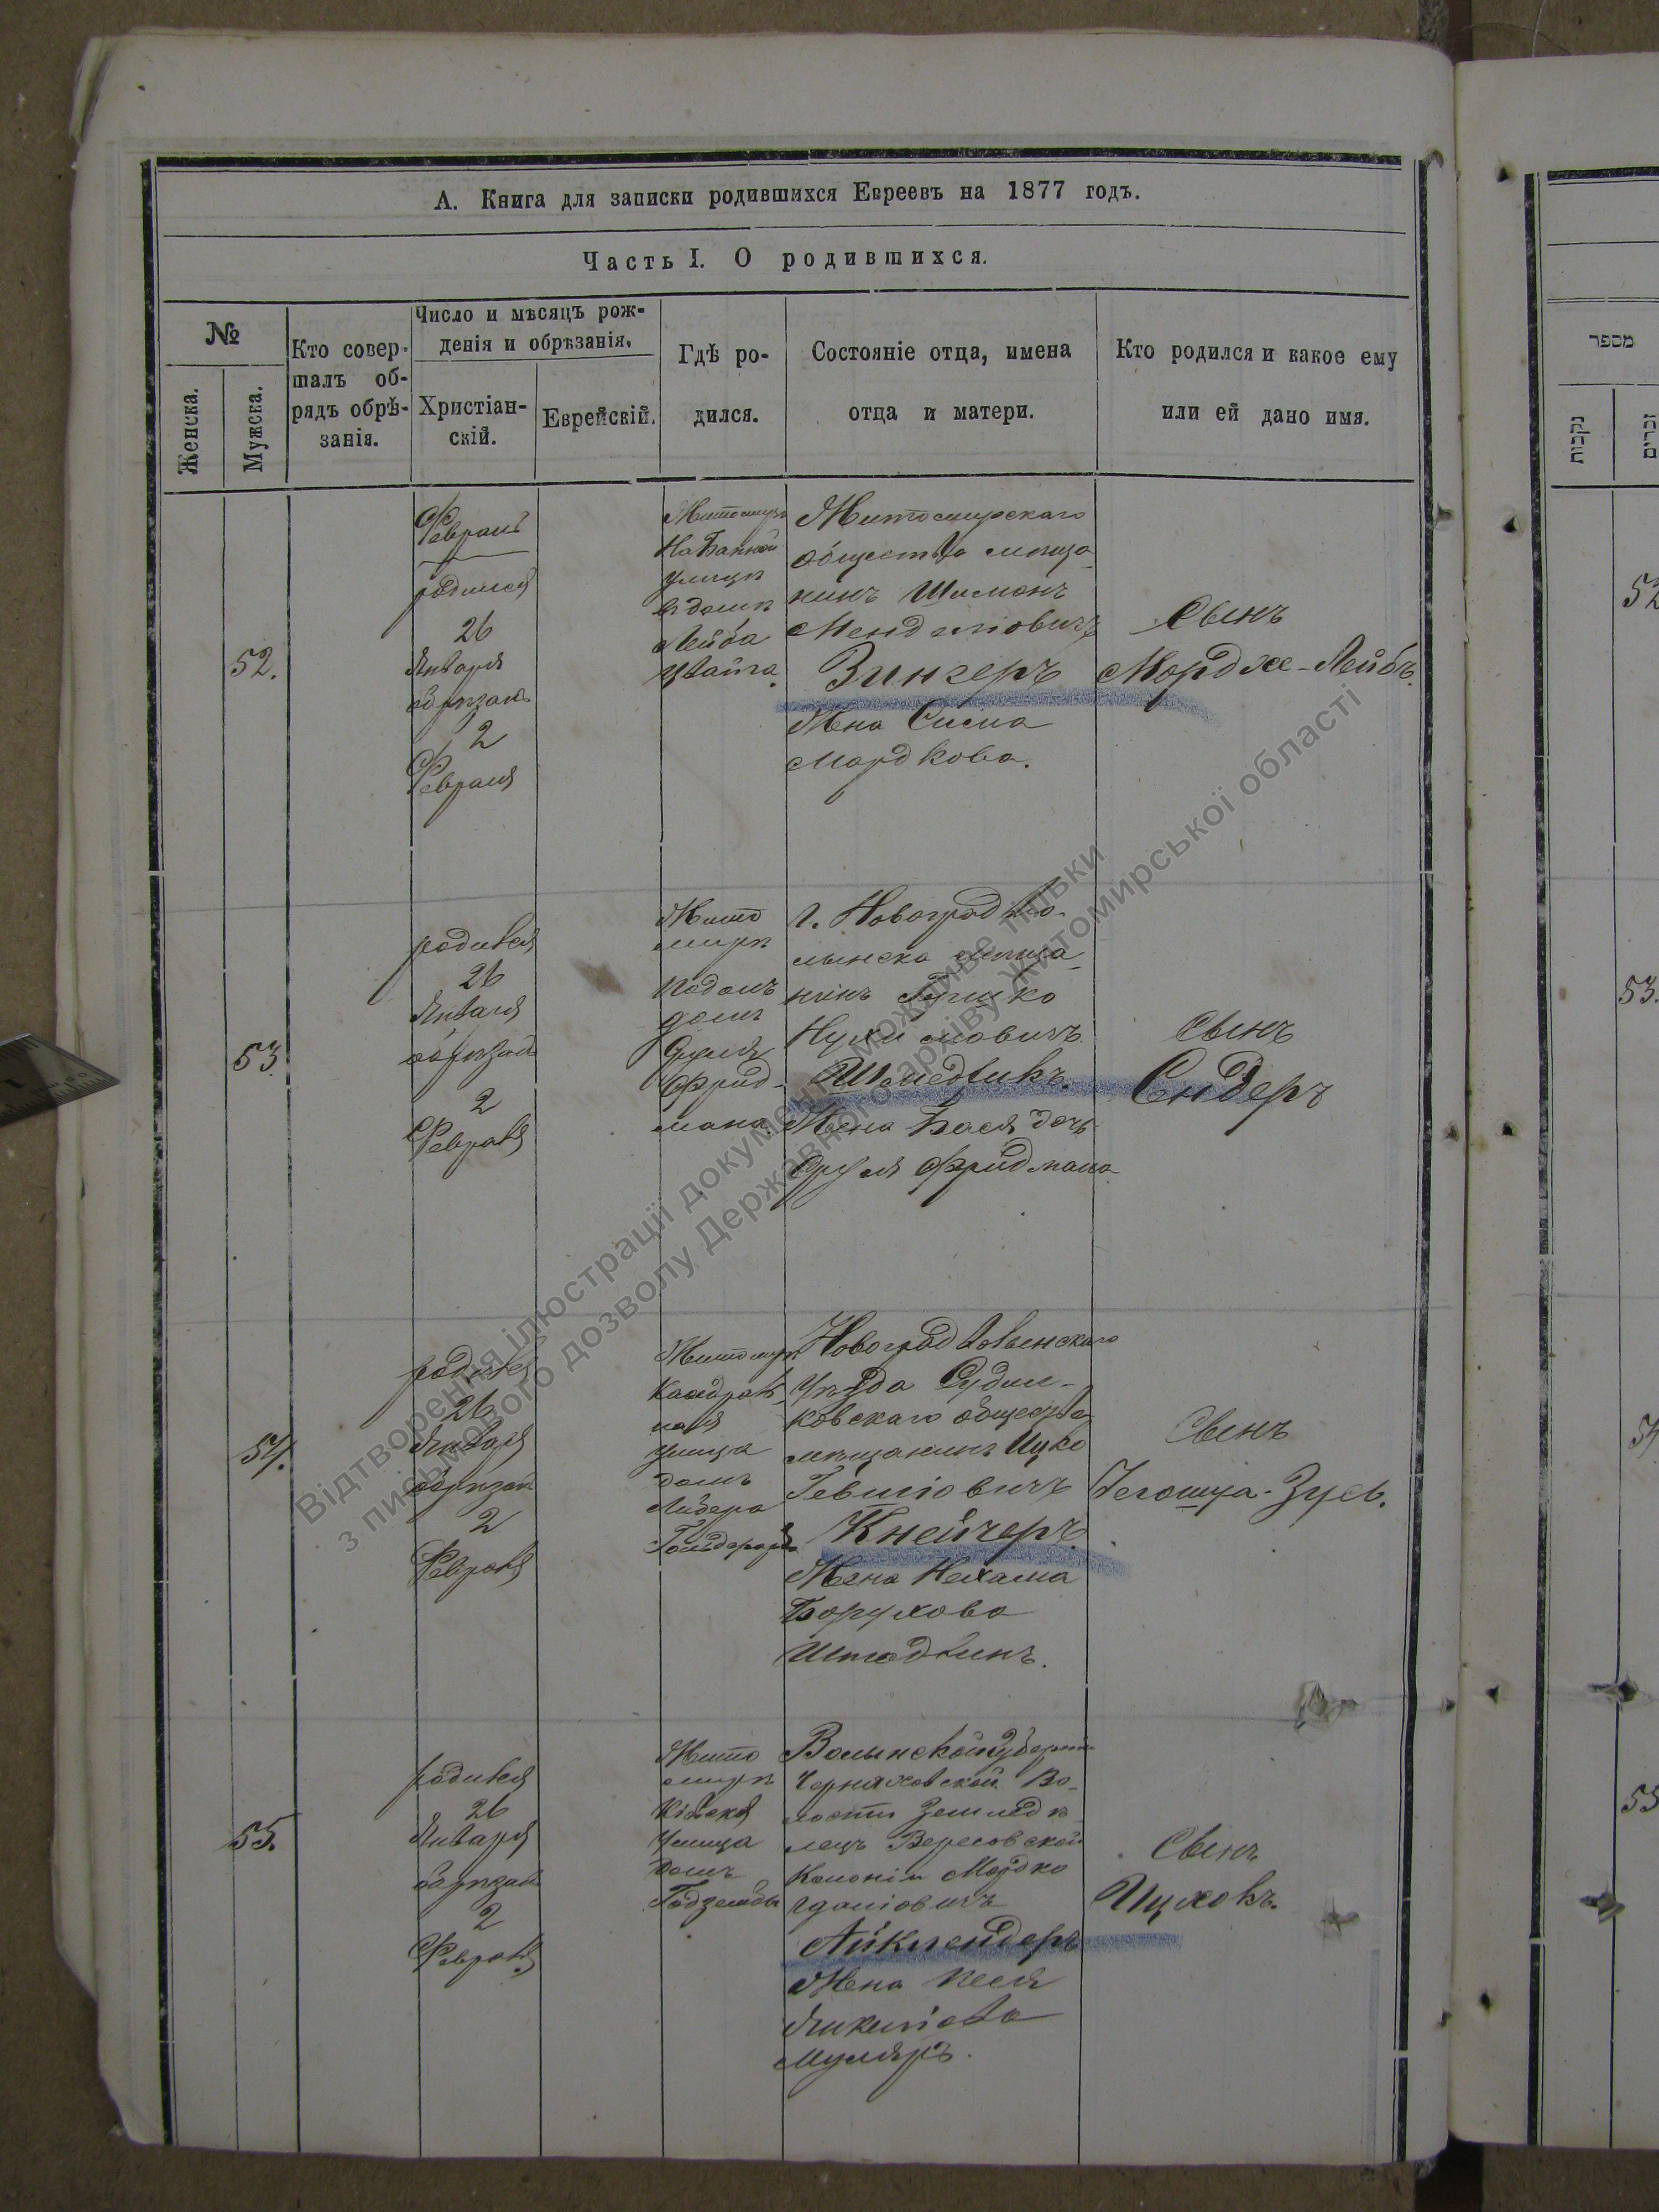 А. Книга для записки родившихся Евреевъ на 1877 годъ.
Часть I. О родившихся.
№
Женска.
Мужска.
Кто совер-
шалъ об-
рядъ обрѣ-
занія.
Число и мѣсяцъ рож-
денія и обрѣзанія.
Христіан-
скій.
Еврейскій.
Гдѣ ро-
дился.
Состояніе отца, имена
отца и матери.
Кто родился и какое ему
или ей дано имя.
52.
Февраль
родился
26
Января
обрѣзанъ
2
Февраля
Житомирѣ
На Банной
улицѣ
въ домѣ
Лейба
Цвайга.
Житомирскаго
общества мѣща-
нинъ Шимонъ
Менделіовичъ
Зингеръ
Жена Сисиа
Мордкова.
Сынъ
Мордхе-Лейбъ.
53.
родився
26
Января
обрѣзанъ
2
Февраля
Жито
мирѣ
домъ
Сруля
Фрид-
мана.
г. Новоградво-
лынска мѣща-
нинъ
Нухимовичъ
Шмедвикъ.
Жена Бася дочь
Сруля Фридмана.
Сынъ
Сндеръ
54.
родився
26
Января
обрѣзан
2
Февраля
Житомирѣ
Кафдраль-
ная
улица
домъ
Новоградволынскаго
Уѣзда Судил-
ковскаго общества
мѣщанинъ Ицко
Гевшіовичъ
Кнейчеръ.
Жена Нехама
Борухова
Штадвинъ.
Сынъ
Іегошуа-Зусь.
55.
родився
26
Января
обрѣзан
2
Февраля
Жито
мирѣ
Кіевская
Улица
Домъ
Волынской губерніи
Черняховской Во-
лости Земледѣ
лецъ Вересовской
Колоніи Мордко
Гдаліовичъ
Айклендеръ
Жена Песя
Янкеліова
Муляръ.
Сынъ
Ицхокъ.
מספר
נקבות
זכרים
52
53.
54
55
Відтворення ілюстрації документа можливе тільки
з письмового дозволу Державного архіву Житомирської області